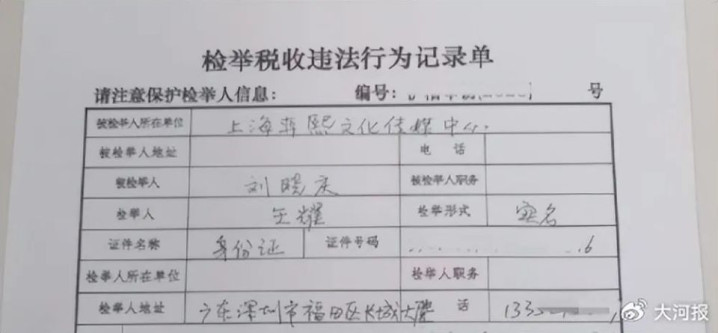 检举税收违法行为记录单
请注意保护检举人信息: 编号: 号
被检举人所在单位 上海菲熙文化传媒中心
被检举人地址 电话
被检举人 刘晓庆 被检举人职务
检举人 王耀 检举形式 实名
证件名称 身份证 证件号码 6
检举人所在单位 检举人职务
检举人地址 广东深圳市福田区长城大厦 话 133
大河报